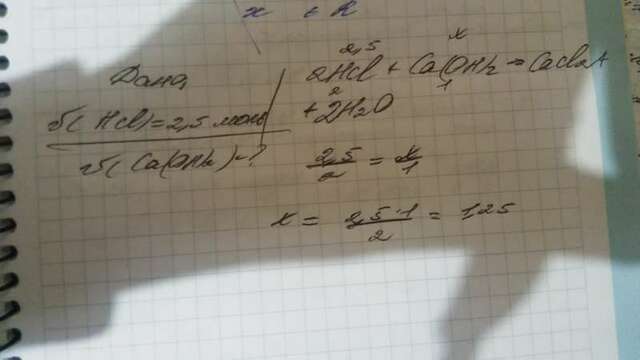 Дано
υ(HCl)=2,5 моль
υ(Ca(OH)2)-?
2,5 x
2HCl + Ca(OH)2 = CaCl2+
2 1
+ 2H2O
2,5/2 = x/1
x = 2,5·1/2 = 1,25